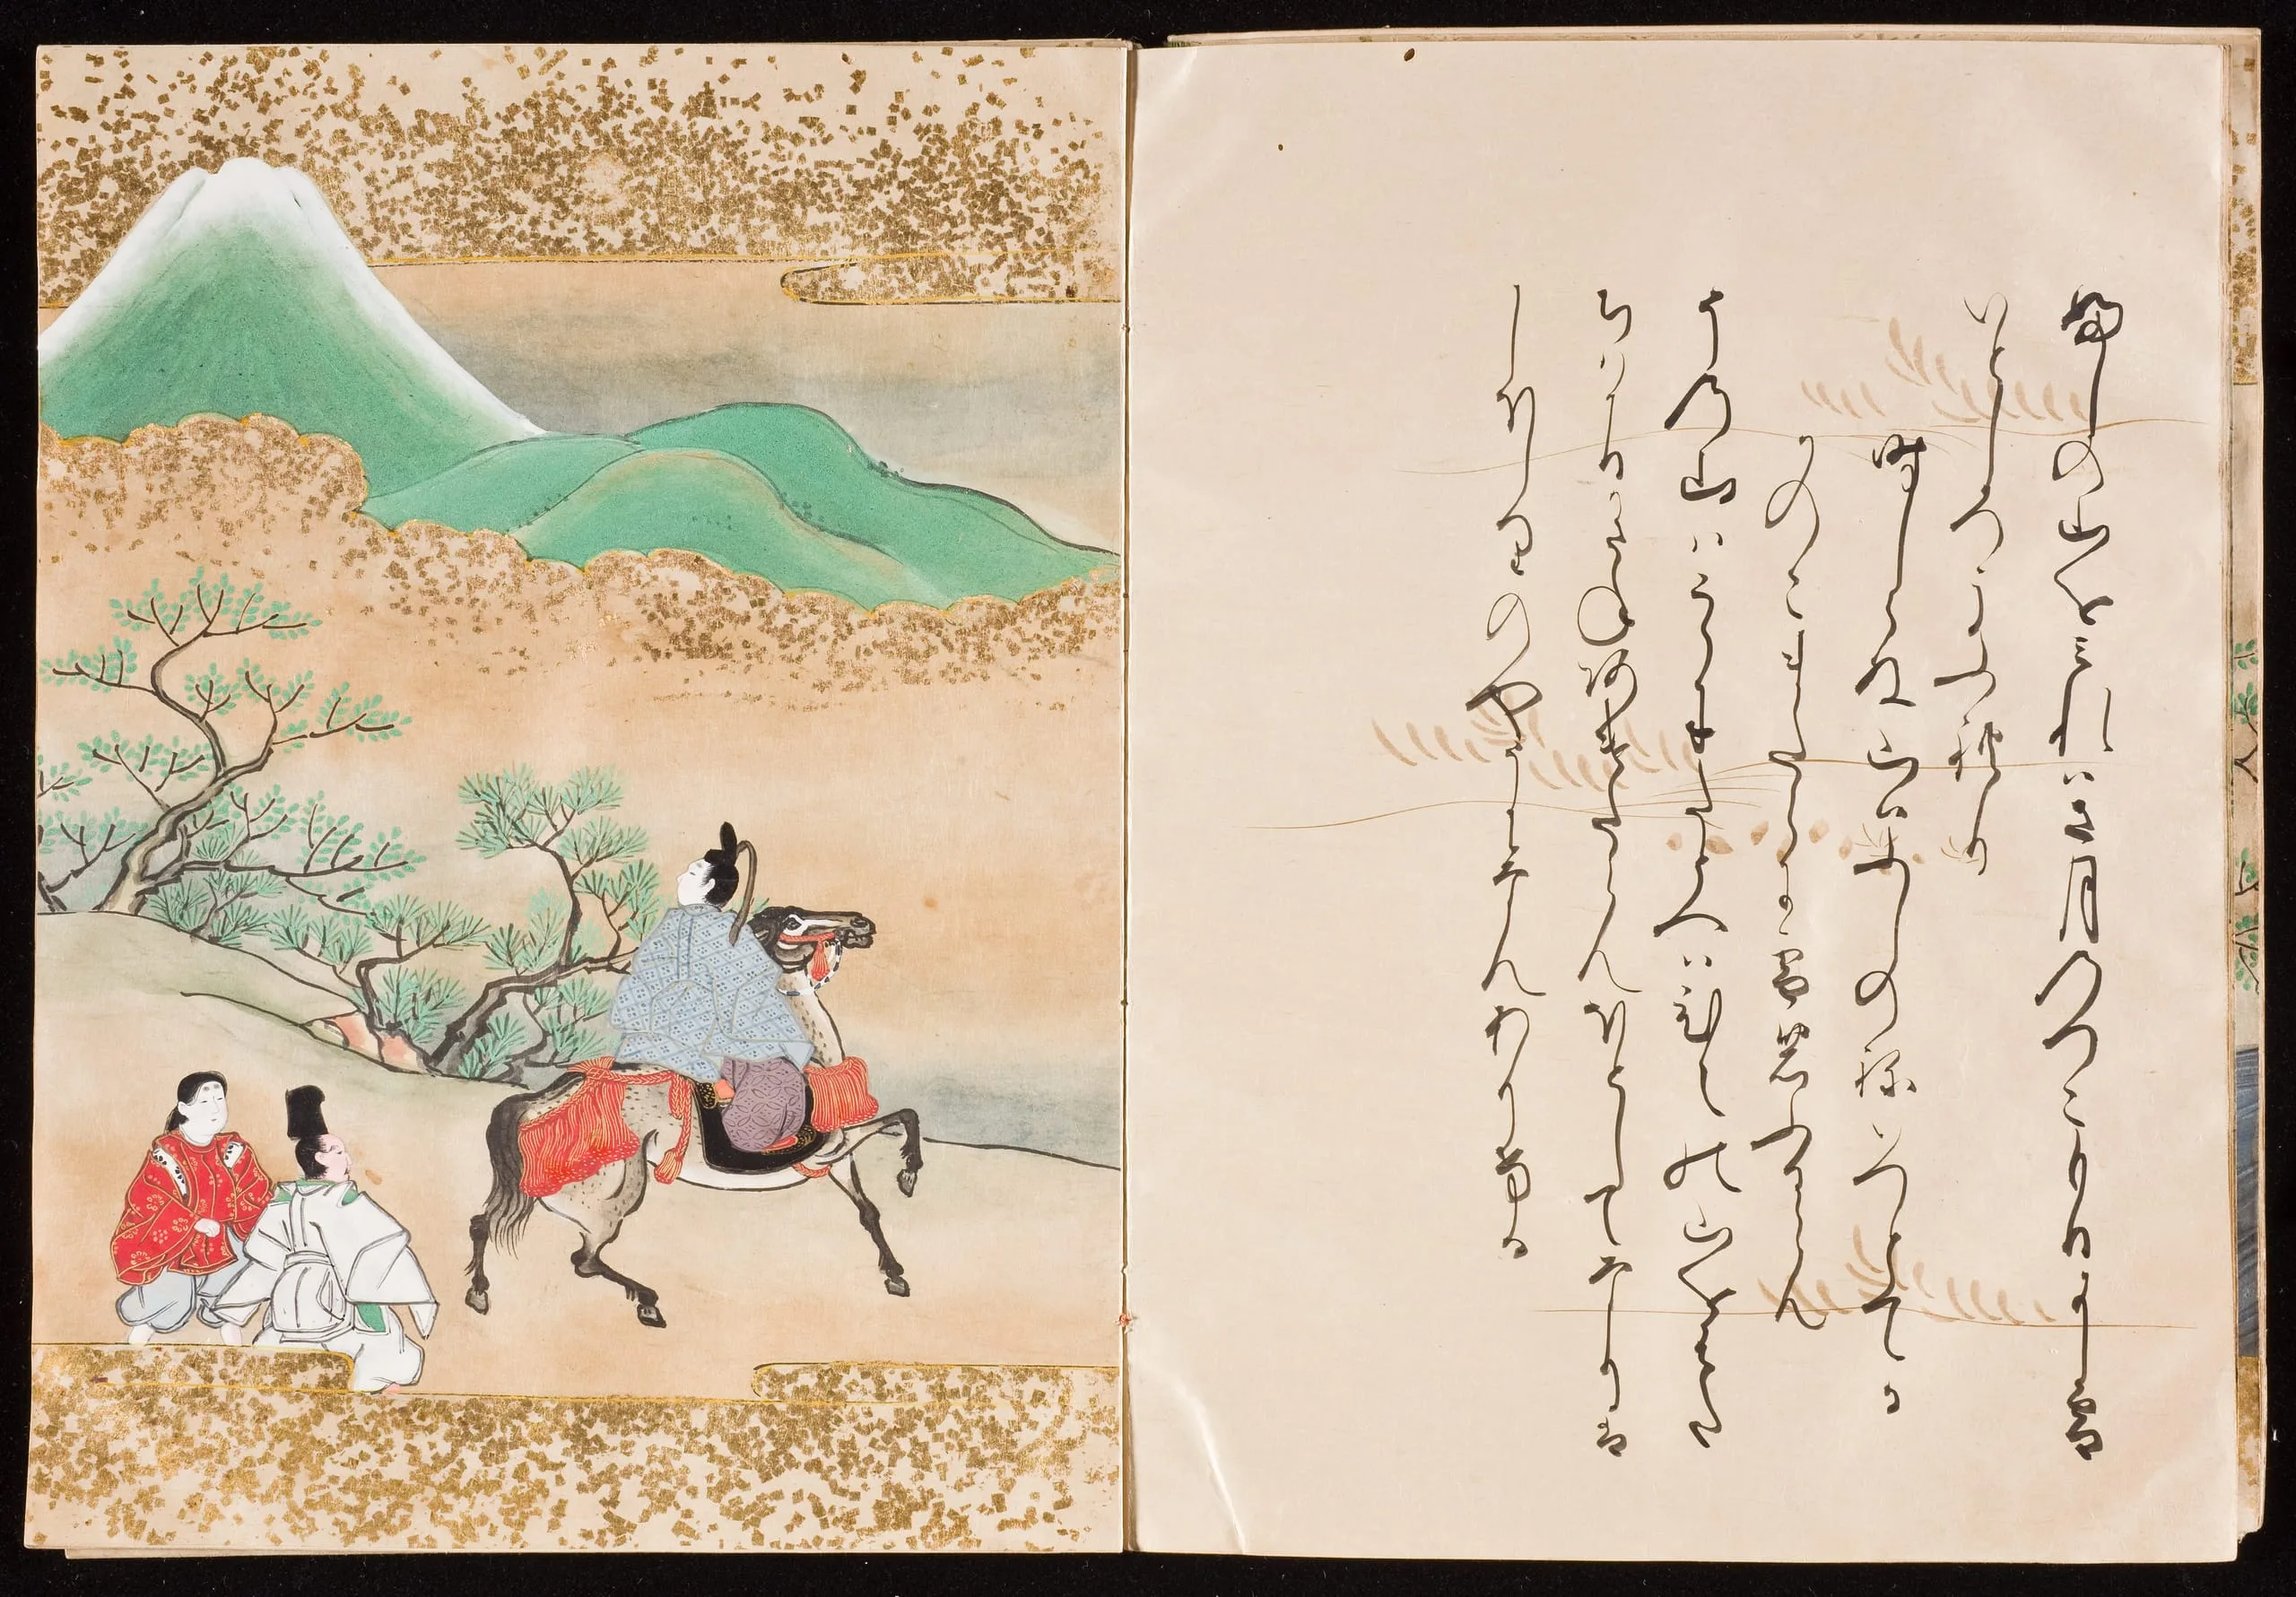 ふしの山を見れは五月のつこもりに雪
いとしろうふれり
時しらぬ山はふしのねいつとてか
かのこまたらに雪のふるらん
その山はこゝにたとへはひえの山を
はたちはかりかさねあけたらんほとしてなりは
しほしりのやうになんありける